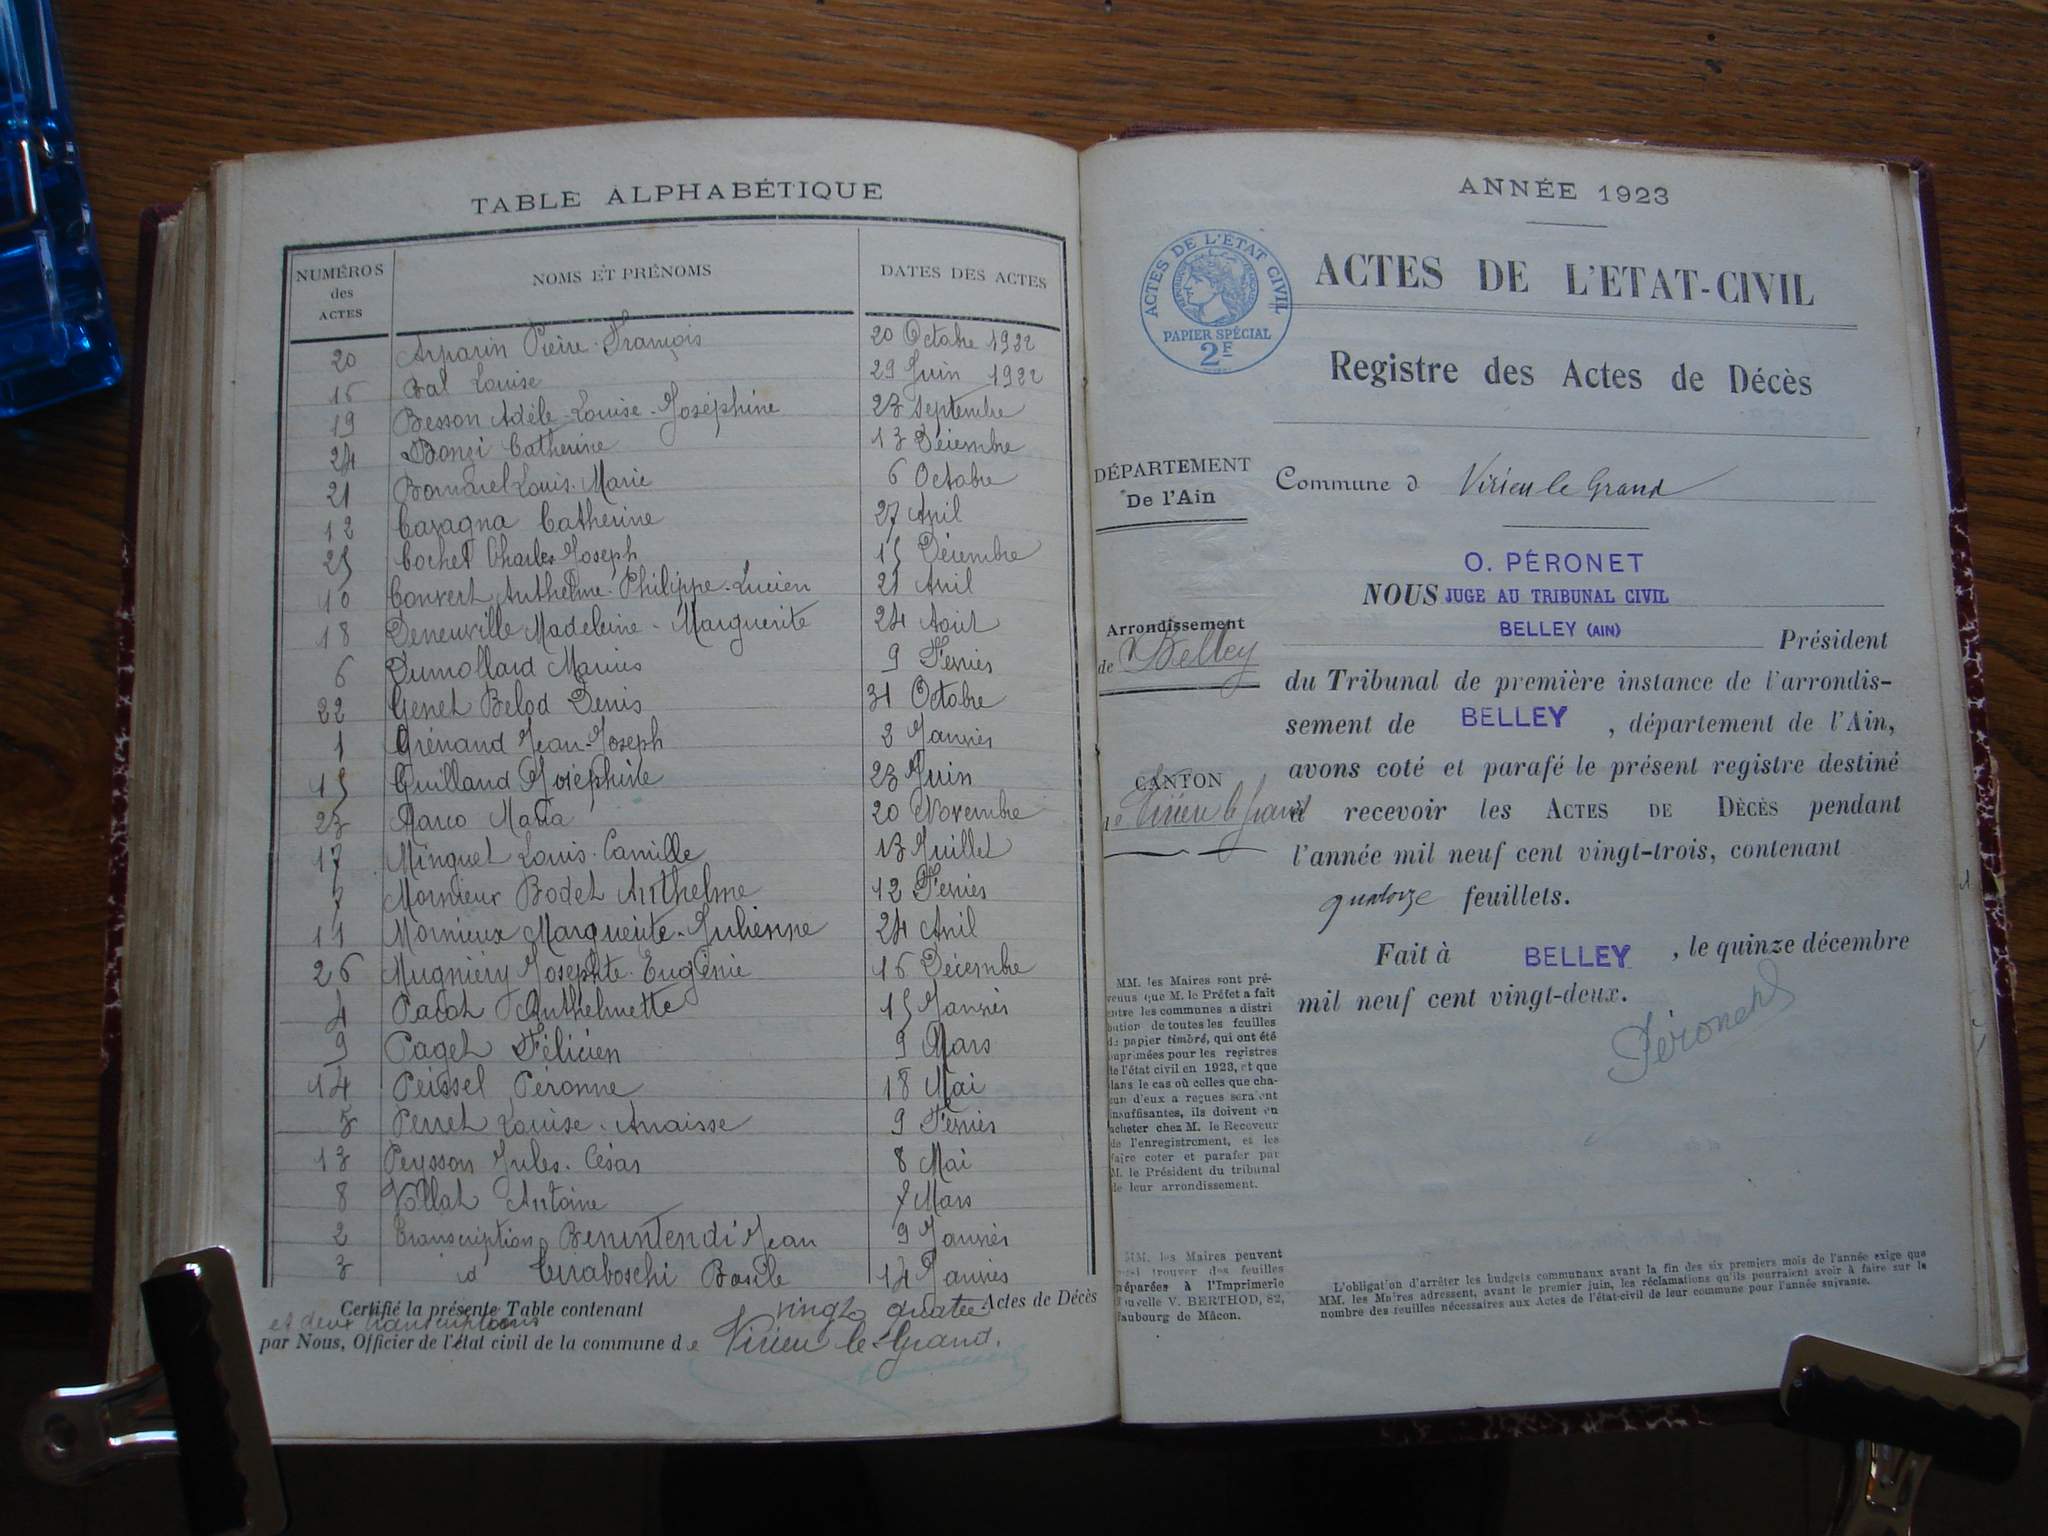 TABLE ALPHABÉTIQUE
NUMÉROS des ACTES NOMS ET PRÉNOMS DATES DES ACTES
20 Arparin Pierre-François 20 Octobre 1922
16 Bal Louise 29 Juin 1922
19 Besson Adèle-Louise-Joséphine 23 Septembre
24 Bonzi Catherine 13 Décembre
21 Bornarel Louis-Marie 6 Octobre
12 Cazagna Catherine 27 Avril
25 Cochet Charles-Joseph 15 Décembre
10 Convert Anthelme-Philippe-Lucien 21 Avril
18 Deneuville Madeleine-Marguerite 24 Août
6 Dumollard Marius 9 Février
22 Genet Belod Denis 31 Octobre
1 Grénaud Jean-Joseph 3 Janvier
15 Guilland Joséphine 23 Juin
23 Marco Maria 20 Novembre
17 Minguet Louis-Camille 13 Juillet
7 Bodet Anthelme 12 Février
11 Mornieux Marguerite-Julienne 24 Avril
26 Mugniéry Josephte-Eugénie 16 Décembre
4 Pacot Anthelmette 15 Janvier
9 Paget Félicien 9 Mars
14 Peissel Péronne 18 Mai
5 Perret Louise-Anaïsse 9 Février
13 Peysson Jules-César 8 Mai
8 Vollat Antoine 7 Mars
2 Transcription Benintendi Jean 9 Janvier
3 id Tiraboschi Basile 14 Janvier
Certifié la présente Table contenant vingt quatre Actes de Décès
et deux transcriptions
par Nous, Officier de l'état civil de la commune de Virieu le Grand.
ANNÉE 1923
ACTES DE L'ÉTAT CIVIL
RÉPUBLIQUE FRANÇAISE
PAPIER SPÉCIAL
2F
ACTES DE L'ETAT-CIVIL
Registre des Actes de Décès
DÉPARTEMENT
De l'Ain
Commune d Virieu le Grand
O. PÉRONET
NOUS JUGE AU TRIBUNAL CIVIL
BELLEY (AIN)
Président
Arrondissement
de Belley
du Tribunal de première instance de l'arrondis-
sement de BELLEY, département de l'Ain,
avons coté et parafé le présent registre destiné
CANTON
de Virieu le Grand
à recevoir les ACTES DE DÉCÈS pendant
l'année mil neuf cent vingt-trois, contenant
quatorze feuillets.
Fait à BELLEY, le quinze décembre
mil neuf cent vingt-deux.
Péronet
MM. les Maires sont pré-
venus que M. le Préfet a fait
entre les communes a distri
bution de toutes les feuilles
de papier timbré, qui ont été
imprimées pour les registres
de l'état civil en 1923, et que
dans le cas où celles que cha-
cun d'eux a reçues seraient
insuffisantes, ils doivent en
acheter chez M. le Receveur
de l'enregistrement, et les
faire coter et parafer par
M. le Président du tribunal
de leur arrondissement.
MM. les Maires peuvent
aussi trouver des feuilles
préparées à l'Imprimerie
Nouvelle V. BERTHOD, 82,
faubourg de Mâcon.
L'obligation d'arrêter les budgets communaux avant la fin des six premiers mois de l'année exige que
MM. les Maires adressent, avant le premier juin, les réclamations qu'ils pourraient avoir à faire sur le
nombre des feuilles nécessaires aux Actes de l'état-civil de leur commune pour l'année suivante.